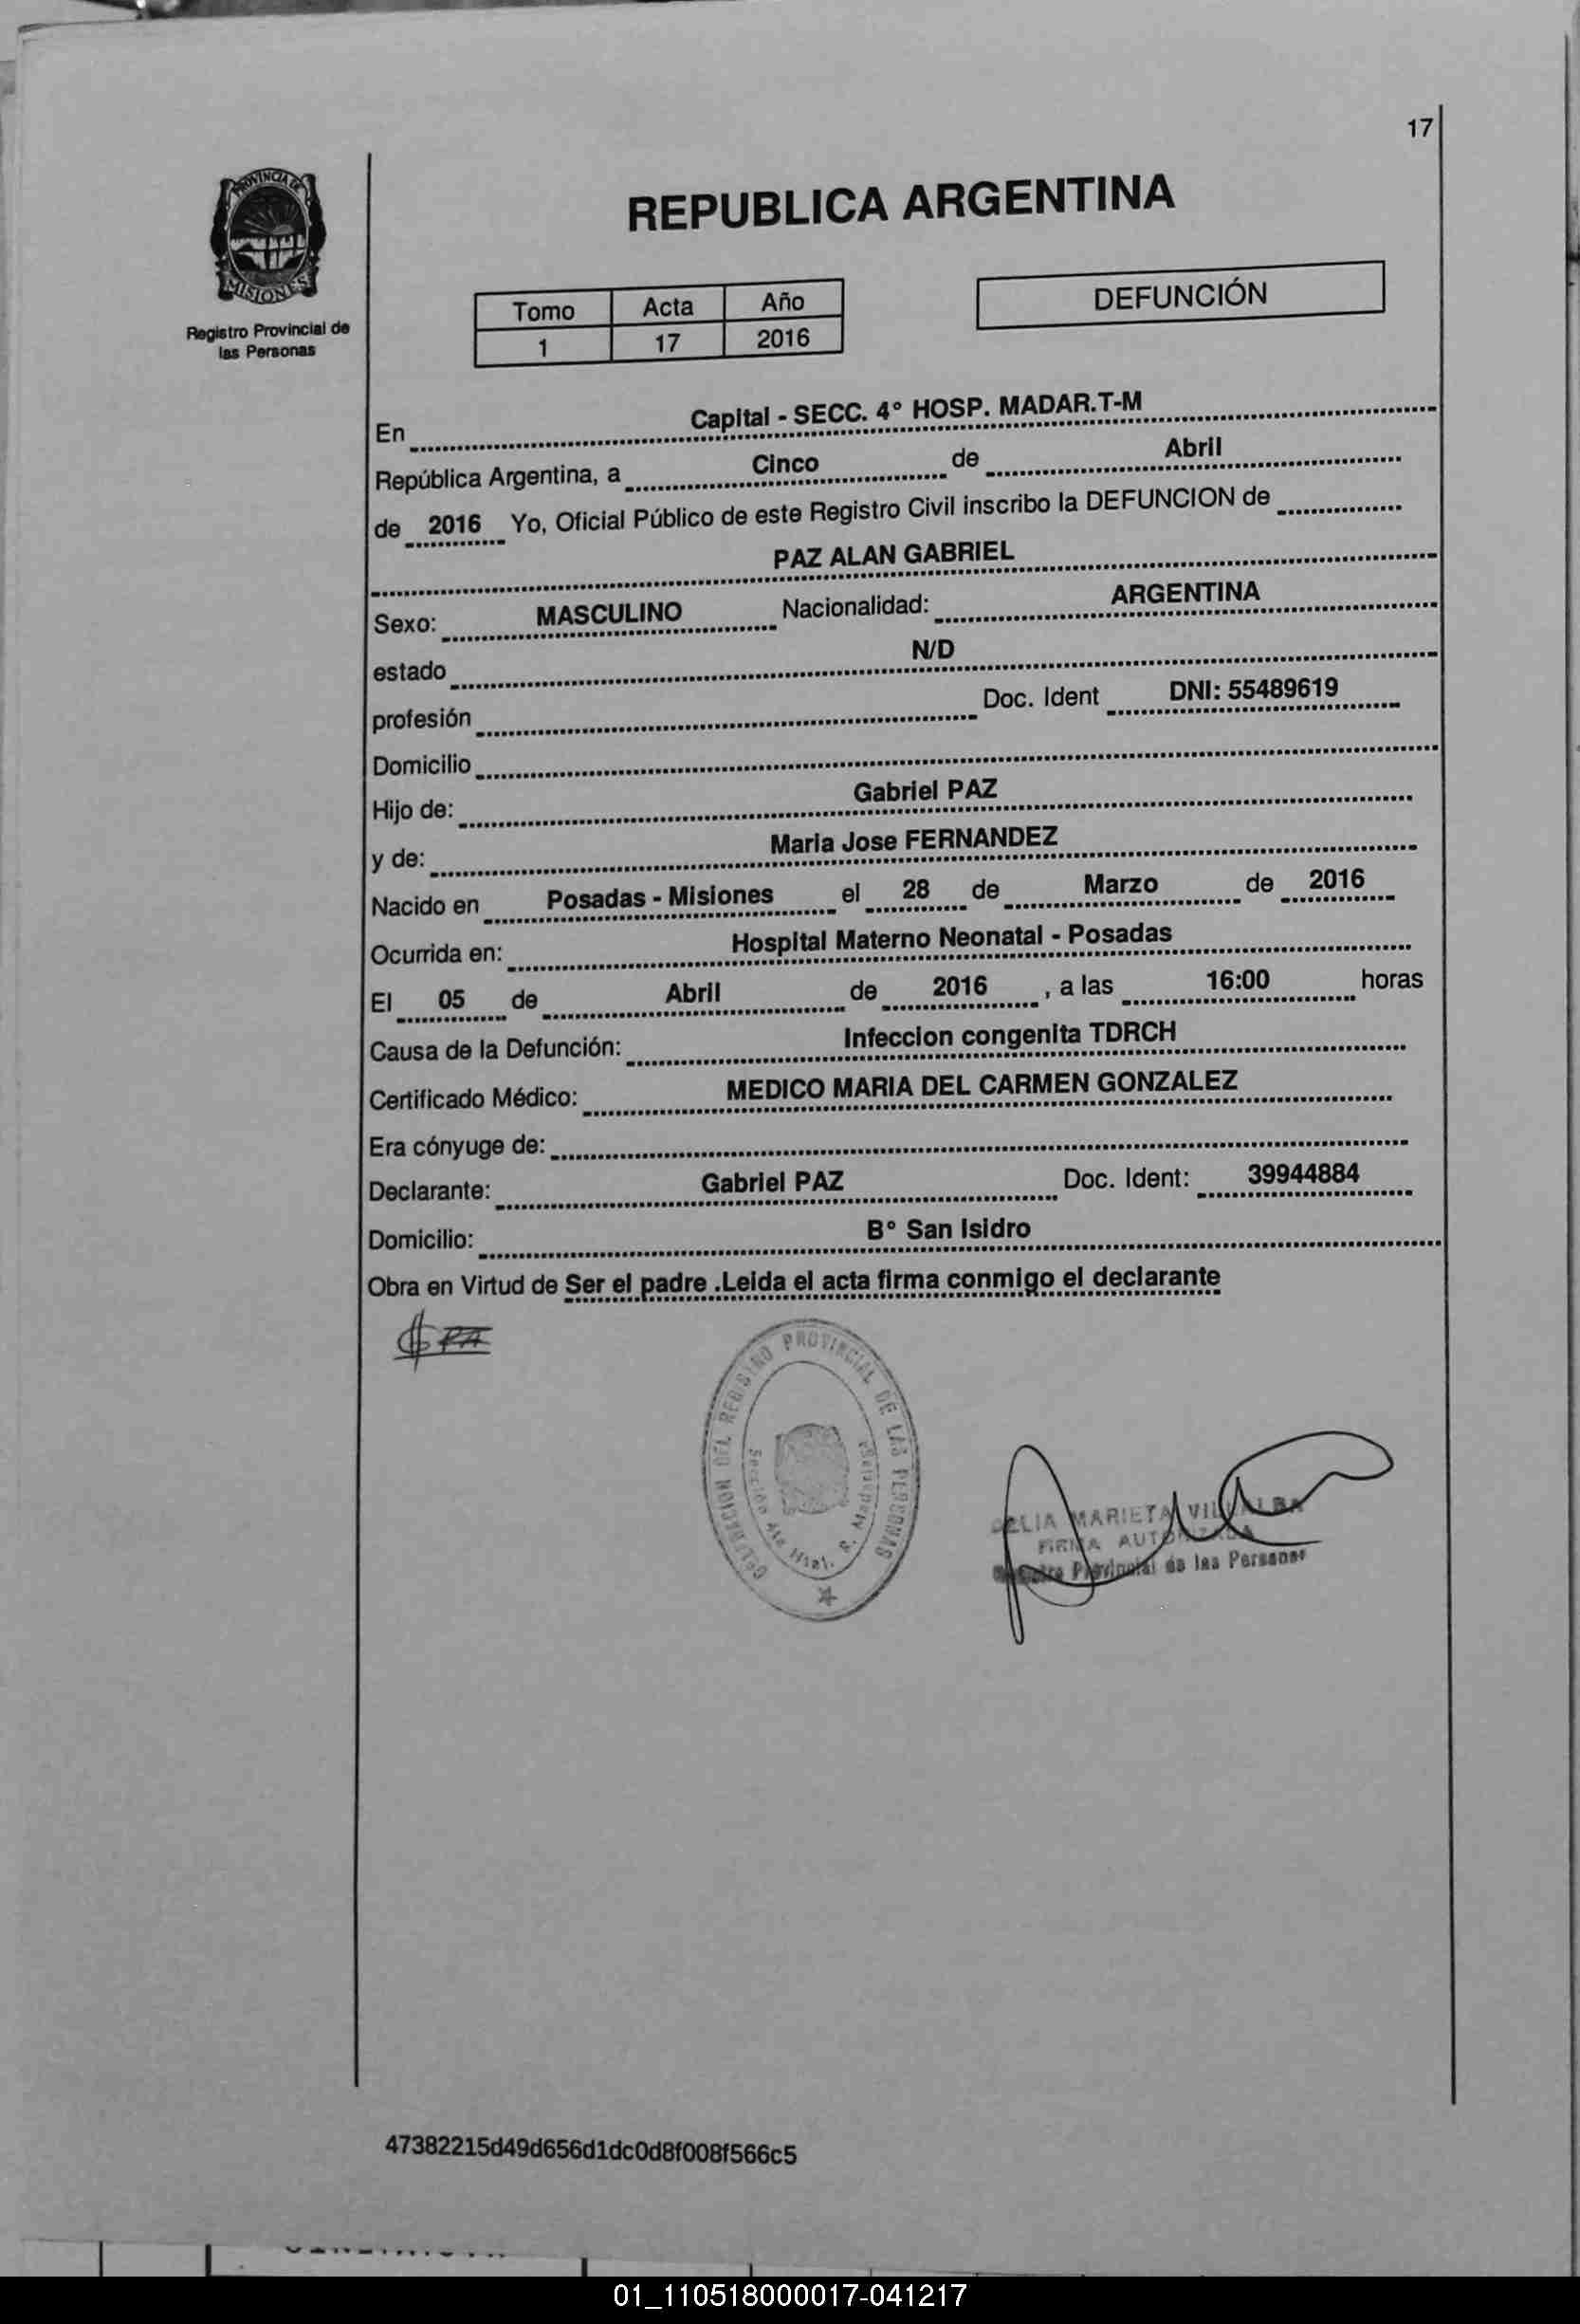 17
PROVINCIA DE
MISIONES
Registro Provincial de
las Personas
REPUBLICA ARGENTINA
Tomo Acta Año
1 17 2016
DEFUNCIÓN
En Capital - SECC. 4° HOSP. MADAR.T-M
República Argentina, a Cinco de Abril
de 2016 Yo, Oficial Público de este Registro Civil inscribo la DEFUNCION de
PAZ ALAN GABRIEL
Sexo: MASCULINO Nacionalidad: ARGENTINA
estado N/D
profesión Doc. Ident DNI: 55489619
Domicilio
Hijo de: Gabriel PAZ
y de: Maria Jose FERNANDEZ
Nacido en Posadas - Misiones el 28 de Marzo de 2016
Ocurrida en: Hospital Materno Neonatal - Posadas
El 05 de Abril de 2016 , a las 16:00 horas
Causa de la Defunción: Infeccion congenita TDRCH
Certificado Médico: MEDICO MARIA DEL CARMEN GONZALEZ
Era cónyuge de:
Declarante: Gabriel PAZ Doc. Ident: 39944884
Domicilio: B° San Isidro
Obra en Virtud de Ser el padre .Leida el acta firma conmigo el declarante
DEL REGISTRO PROVINCIAL DE LAS PERSONAS
Sección 4ta Htal. R. Madariaga
MARIETA VILLALBA
FIRMA AUTORIZADA
Provincial de las Personas
47382215d49d656d1dc0d8f008f566c5
01_110518000017-041217